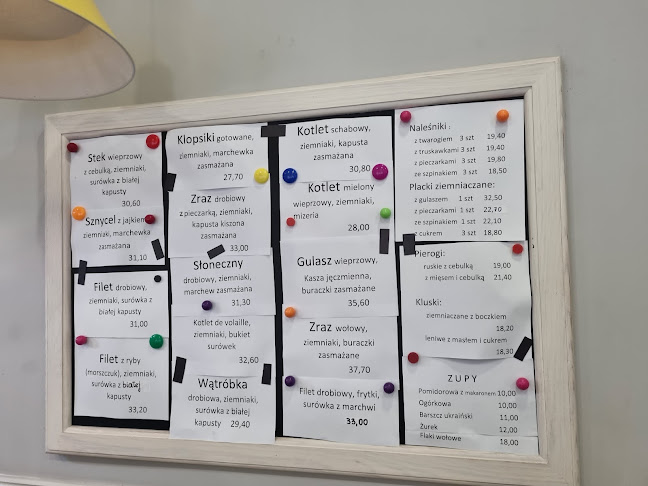 Stek wieprzowy
z cebulką, ziemniaki,
surówka z białej
kapusty
30,60
Sznycel z jajkiem,
ziemniaki, marchewka
zasmażana
31,10
Filet drobiowy,
ziemniaki, surówka z
białej kapusty
31,00
Filet z ryby
(morszczuk), ziemniaki,
surówka z białej
kapusty
33,20
Kłopsiki gotowane,
ziemniaki, marchewka
zasmażana
27,70
Zraz drobiowy
z pieczarką, ziemniaki,
kapusta kiszona
zasmażana
33,00
Słoneczny
drobiowy, ziemniaki,
marchew zasmażana
31,30
Kotlet de volaille,
ziemniaki, bukiet
surówek
32,60
Wątróbka
drobiowa, ziemniaki,
surówka z białej
kapusty 29,40
Kotlet schabowy,
ziemniaki, kapusta
zasmażana
30,80
Kotlet mielony
wieprzowy, ziemniaki,
mizeria
28,00
Gulasz wieprzowy,
Kasza jęczmienna,
buraczki zasmażane
35,60
Zraz wołowy,
ziemniaki, buraczki
zasmażane
37,70
Filet drobiowy, frytki,
surówka z marchwi
33,00
Naleśniki :
z twarogiem 3 szt 19,40
z truskawkami 3 szt 19,40
z pieczarkami 3 szt 19,80
ze szpinakiem 3 szt 18,50
Placki ziemniaczane:
z gulaszem 1 szt 32,50
z pieczarkami 1 szt 22,70
ze szpinakiem 1 szt 22,10
z cukrem 3 szt 18,80
Pierogi:
ruskie z cebulką 19,00
z mięsem i cebulką 21,40
Kluski:
ziemniaczane z boczkiem
18,20
leniwe z masłem i cukrem
18,30
ZUPY
Pomidorowa z makaronem 10,00
Ogórkowa 10,00
Barszcz ukraiński 11,00
Żurek 12,00
Flaki wołowe 18,00